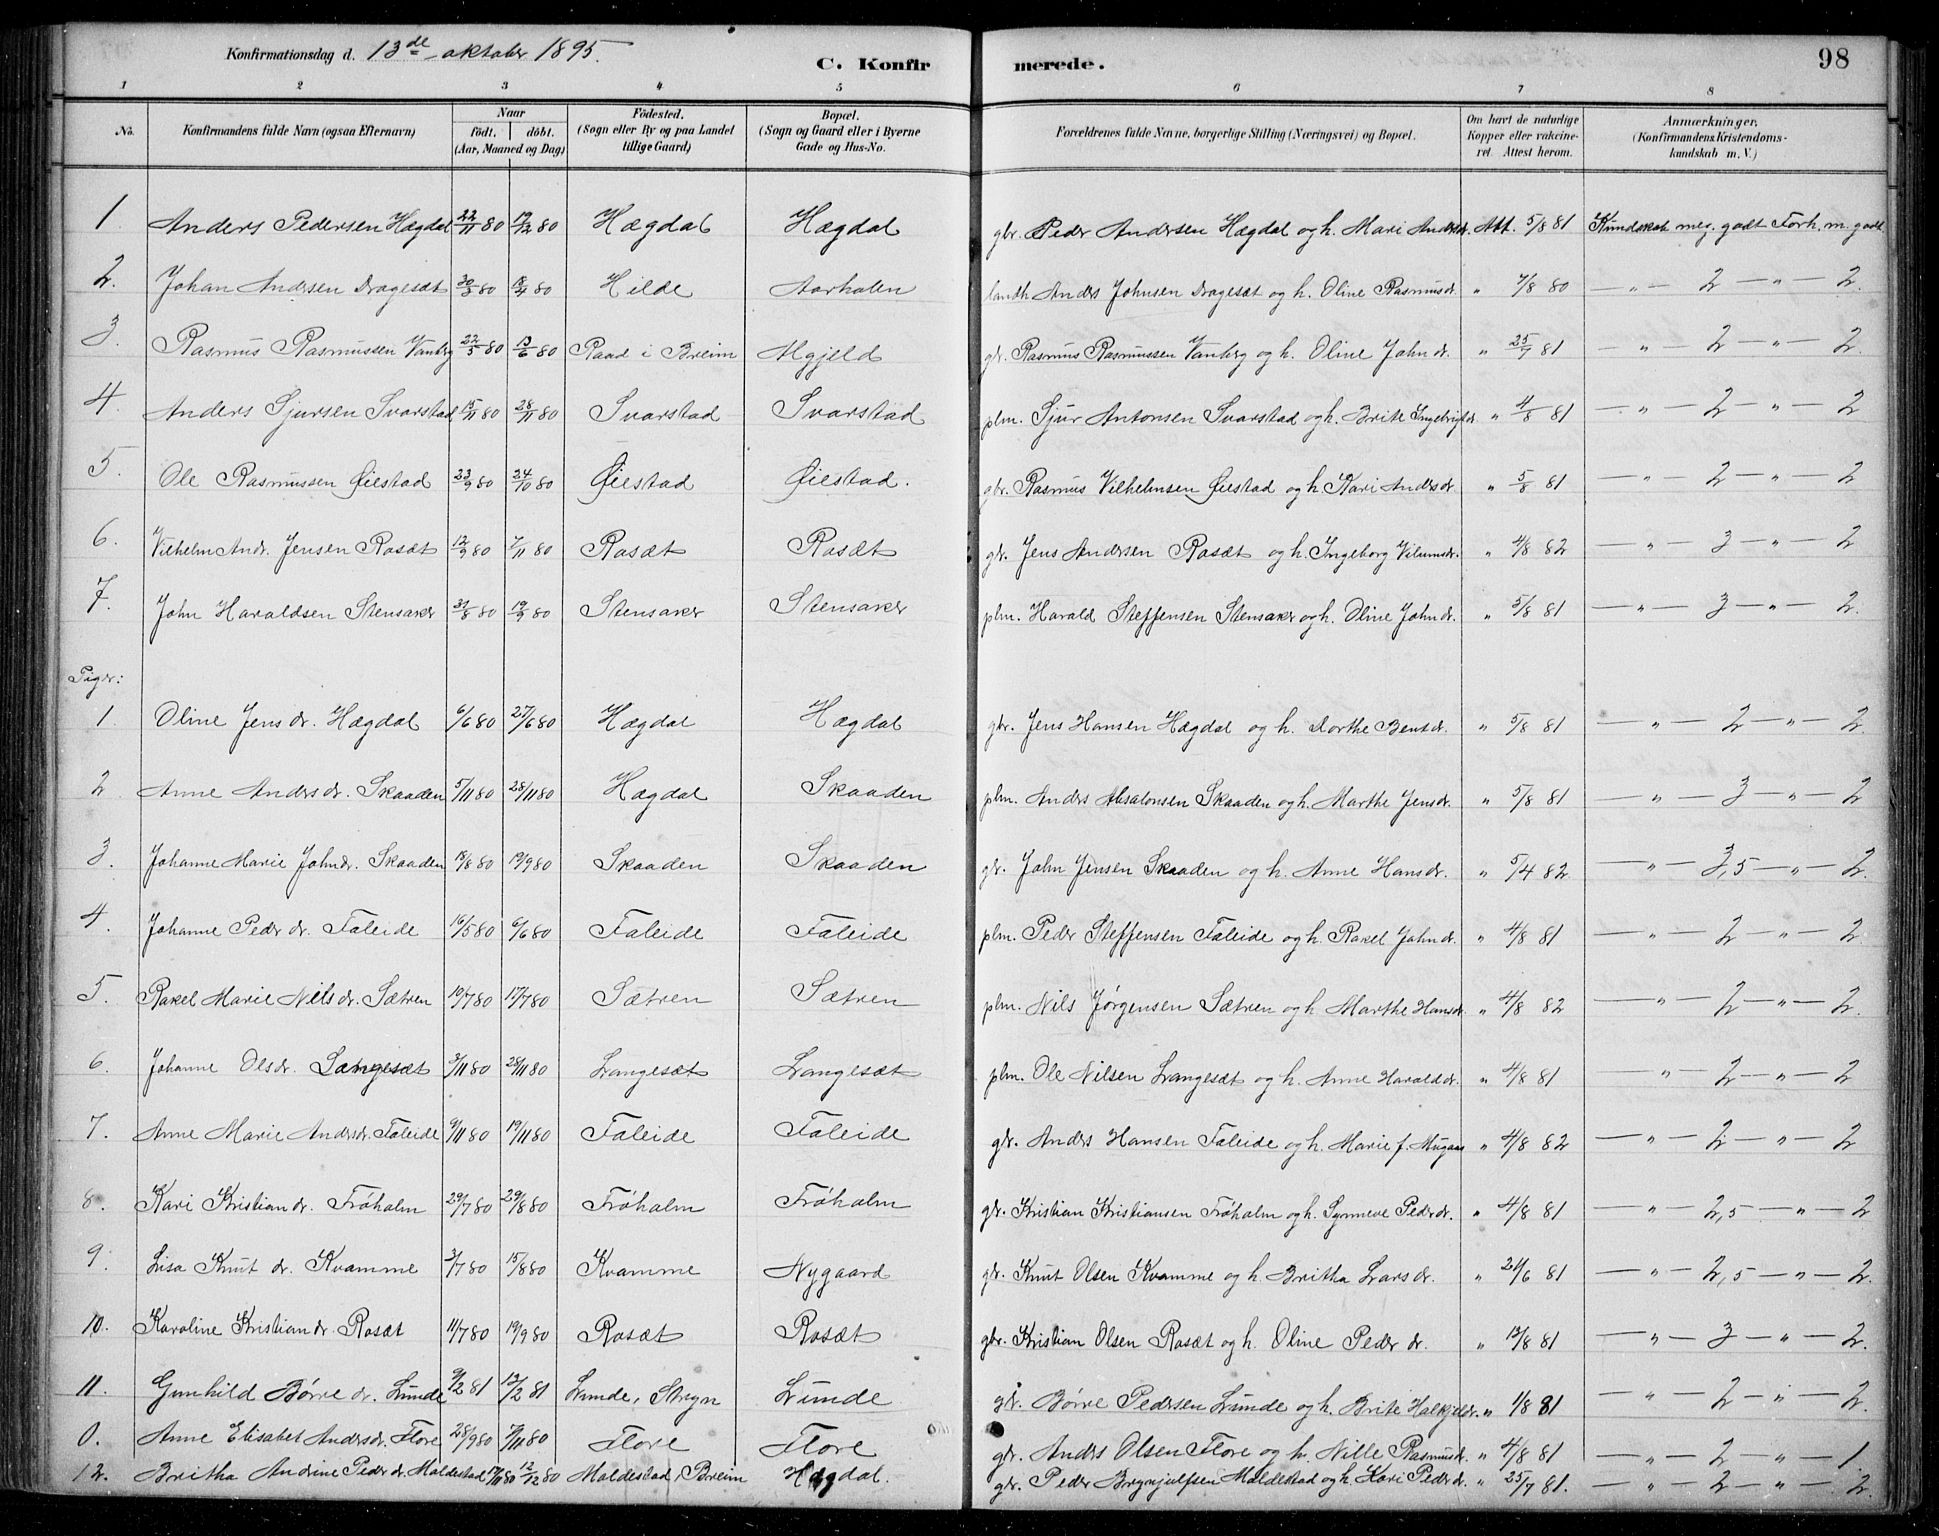 Konfirmationsdag d. 13de oktober 1895.
C. Konfirmerede. 98
1 2 3 4 5 6 7 8
No. Konfirmandens fulde Navn (ogsaa Efternavn) Naar födt. döbt. (Aar, Maaned og Dag) Födested. (Sogn eller By og paa Landet tillige Gaard) Bopæl. (Sogn og Gaard eller i Byerne Gade og Hus-No. Forældrenes fulde Navne, borgerlige Stilling (Næringsvei) og Bopæl. Om havt de naturlige Kopper eller vakcineret. Attest herom. Anmærkninger. (Konfirmandens Kristendomskundskab m. V.)
1 Anders Pedersen Hægdal 22/11 80 19/12 80 Hægdal Hægdal gbr. Peder Andersen Hægdal og h. Mari Andersdr. Att. 5/8 81 Kundskab meg. godt Forh. m. godt
2. Johan Andersen Dragesæt 30/3 80 18/4 80 Hilde Aarholen landh Anders Johnsen Dragesæt og h. Oline Rasmusdr. " 7/8 80 — " — 2 — " — 2.
3 Rasmus Rasmussen Vanberg 22/5 80 13/6 80 Raad i Breim Mgjeld gbr. Rasmus Rasmussen Vanberg og h. Oline Johndr. " 25/7 81 — " — 2 — " — 2.
4. Anders Sjursen Svarstad 15/11 80 28/11 80 Svarstad Svarstad plm. Sjur Antonsen Svarstad og h. Brite Ingebrigtdr. " 4/8 81 — " — 2 — " — 2
5. Ole Rasmussen Øiestad 23/9 80 24/10 80 Øiestad Øiestad. gbr. Rasmus Vilhelmsen Øiestad og h Kari Andersdr " 5/8 81 — " — 2 — " — 2
6. Vilhelm Andr. Jensen Rosæt 12/9 80 7/11 80 Rosæt Rosæt gbr. Jens Andersen Rosæt og h. Ingeborg Vilumsdr. " 4/8 82 — " — 3 — " — 2
7. John Haraldsen Stensaker 31/8 80 19/9 80 Stensaker Stensaker plm. Harald Steffensen Stensaker og h. Oline Johndr. " 5/8 81 — " — 3 — " — 2.
Piger:
1 Oline Jensdr. Hægdal 6/6 80 27/6 80 Hægdal Hægdal gbr. Jens Hansen Hægdal og h. Dorthe Bentdr. " 5/8 81 — " — 2 — " — 2.
2 Anne Andersdr. Skaaden 5/11 80 28/11 80 Hægdal Skaaden plm. Anders Absalonsen Skaaden og h. Marthe Jensdr. " 5/8 81 — " — 3 — " — 2
3. Johanne Marie Johndr. Skaaden 18/8 80 19/9 80 Skaaden Skaaden gbr. John Jensen Skaaden og h. Anne Hansdr. " 5/4 82 — " — 3,5 — " — 2.
4. Johanne Pedersdr. Faleide 16/5 80 6/6 80 Faleide Faleide plm. Peder Steffensen Faleide og h. Rakel Johndr. " 4/8 81 — " — 2 — " — 2
5. Rakel Marie Nilsdr. Sætren 10/7 80 17/7 80 Sætren Sætren plm. Nils Jørgensen Sætren og h Marthe Hansdr. " 4/8 82 — " — 2 — " — 2.
6. Johanne Olsdr. Langesæt 3/11 80 28/11 80 Langesæt Langesæt plm. Ole Nilsen Langesæt og h. Anne Haralddr. " 4/8 81 — " — 2 — " — 2
7. Anne Marie Andersdr. Faleide 9/11 80 19/11 80 Faleide Faleide gbr. Anders Hansen Faleide og h. Marie f. Mugaas " 4/8 82 — " — 2 — " — 2
8. Kari Kristiandr. Frøholm 29/7 80 29/8 80 Frøholm Frøholm gbr. Kristian Kristiansen Frøholm og h. Synneve Pedersdr. " 4/8 81 — " — 2,5 — " — 2
9. Lisa Knutdr. Kvamme 3/7 80 15/8 80 Kvamme Nygaard gbr. Knut Olsen Kvamme og h. Britha Larsdr. " 24/6 81 — " — 2,5 — " — 2.
10. Karoline Kristiandr. Rosæt 11/7 80 19/9 80 Rosæt Rosæt gbr. Kristian Olsen Rosæt og h. Oline Pedersdr. " 12/8 81 — " — 3 — " — 2.
11. Gunhild Børredr. Lunde 9/2 81 13/2 81 Lunde, Stryn Lunde gbr. Børre Pedersen Lunde og h. Brite Halkjeldr. " 1/8 81 — " — 2 — " — 2.
0. Anne Elisabet Andersdr. Flore 28/9 80 7/11 80 Flore Flore gbr. Anders Olsen Flore og h. Nille Rasmusdr. " 4/8 81 — " — 2 — " — 1
12. Britha Andrine Pedersdr. Moldestad 17/11 80 12/12 80 Moldestad, Breim Hægdal. gbr. Peder Brynjulfsen Moldestad og h. Kari Pedersdr. " 25/7 81. — " — 2 — " — 2.